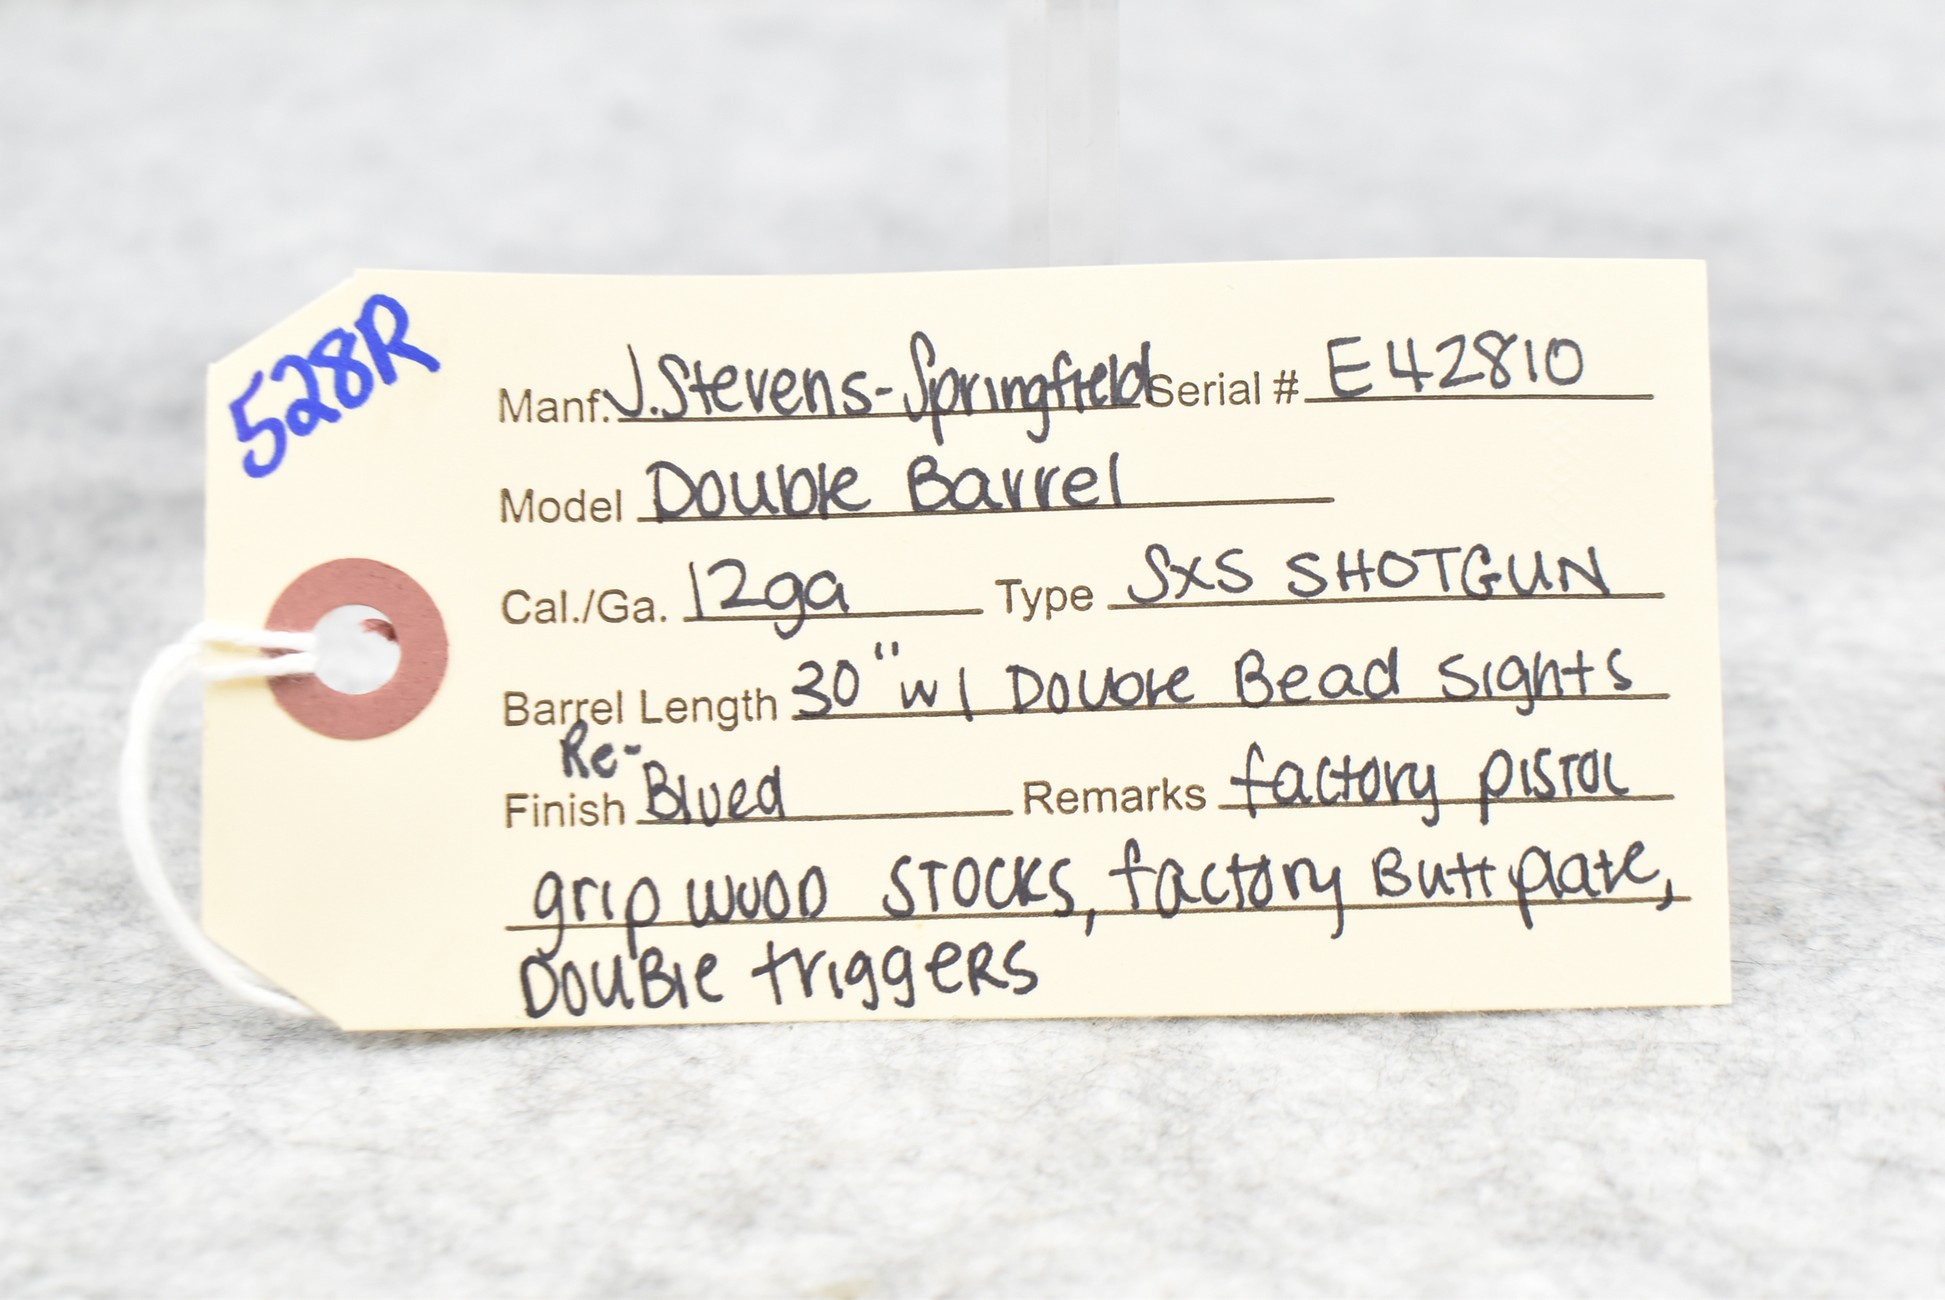 528R
Manf. J. Stevens-Springfield Serial # E42810
Model Double Barrel
Cal./Ga. 12ga Type SXS SHOTGUN
Barrel Length 30" w/ Double Bead Sights
Re-
Finish Blued Remarks factory PISTOL
grip WOOD STOCKS, factory Butt plate,
DOUBle triggERS